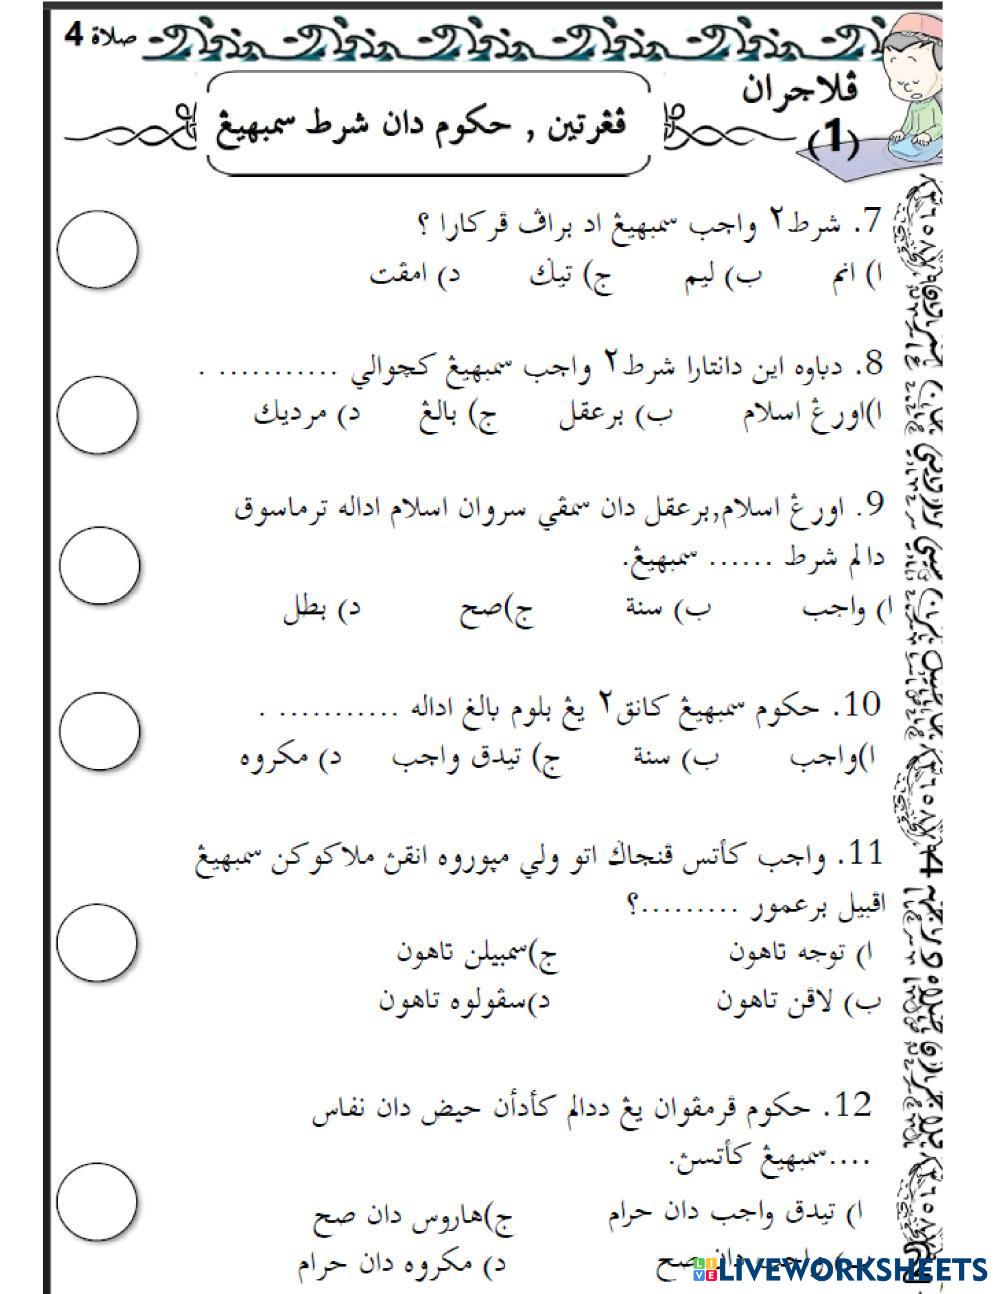 صلاة 4
ڤلاجران
(1)
ڤڠرتين , حكوم دان شرط سمبهيڠ
7. شرط٢ واجب سمبهيڠ اد براڤ ڤركارا ؟
ا) انم ب) ليم ج) تيݢ د) امڤت
8. دباوه اين دانتارا شرط٢ واجب سمبهيڠ كچوالي ........... .
ا)اورڠ اسلام ب) برعقل ج) بالڠ د) مرديك
9. اورڠ اسلام,برعقل دان سمڤي سروان اسلام اداله ترماسوق
دالم شرط ...... سمبهيڠ.
ا) واجب ب) سنة ج)صح د) بطل
10. حكوم سمبهيڠ كانق٢ يڠ بلوم بالغ اداله ........... .
ا)واجب ب) سنة ج) تيدق واجب د) مكروه
11. واجب كأتس ڤنجاݢ اتو ولي مپوروه انقڽ ملاكوكن سمبهيڠ
اڤبيل برعمور .........؟
ا) توجه تاهون ج)سمبيلن تاهون
ب) لاڤن تاهون د)سڤولوه تاهون
12. حكوم ڤرمڤوان يڠ ددالم كأدأن حيض دان نفاس
....سمبهيڠ كأتسڽ.
ا) تيدق واجب دان حرام ج)هاروس دان صح
ب) واجب دان صح د) مكروه دان حرام
LIVEWORKSHEETS